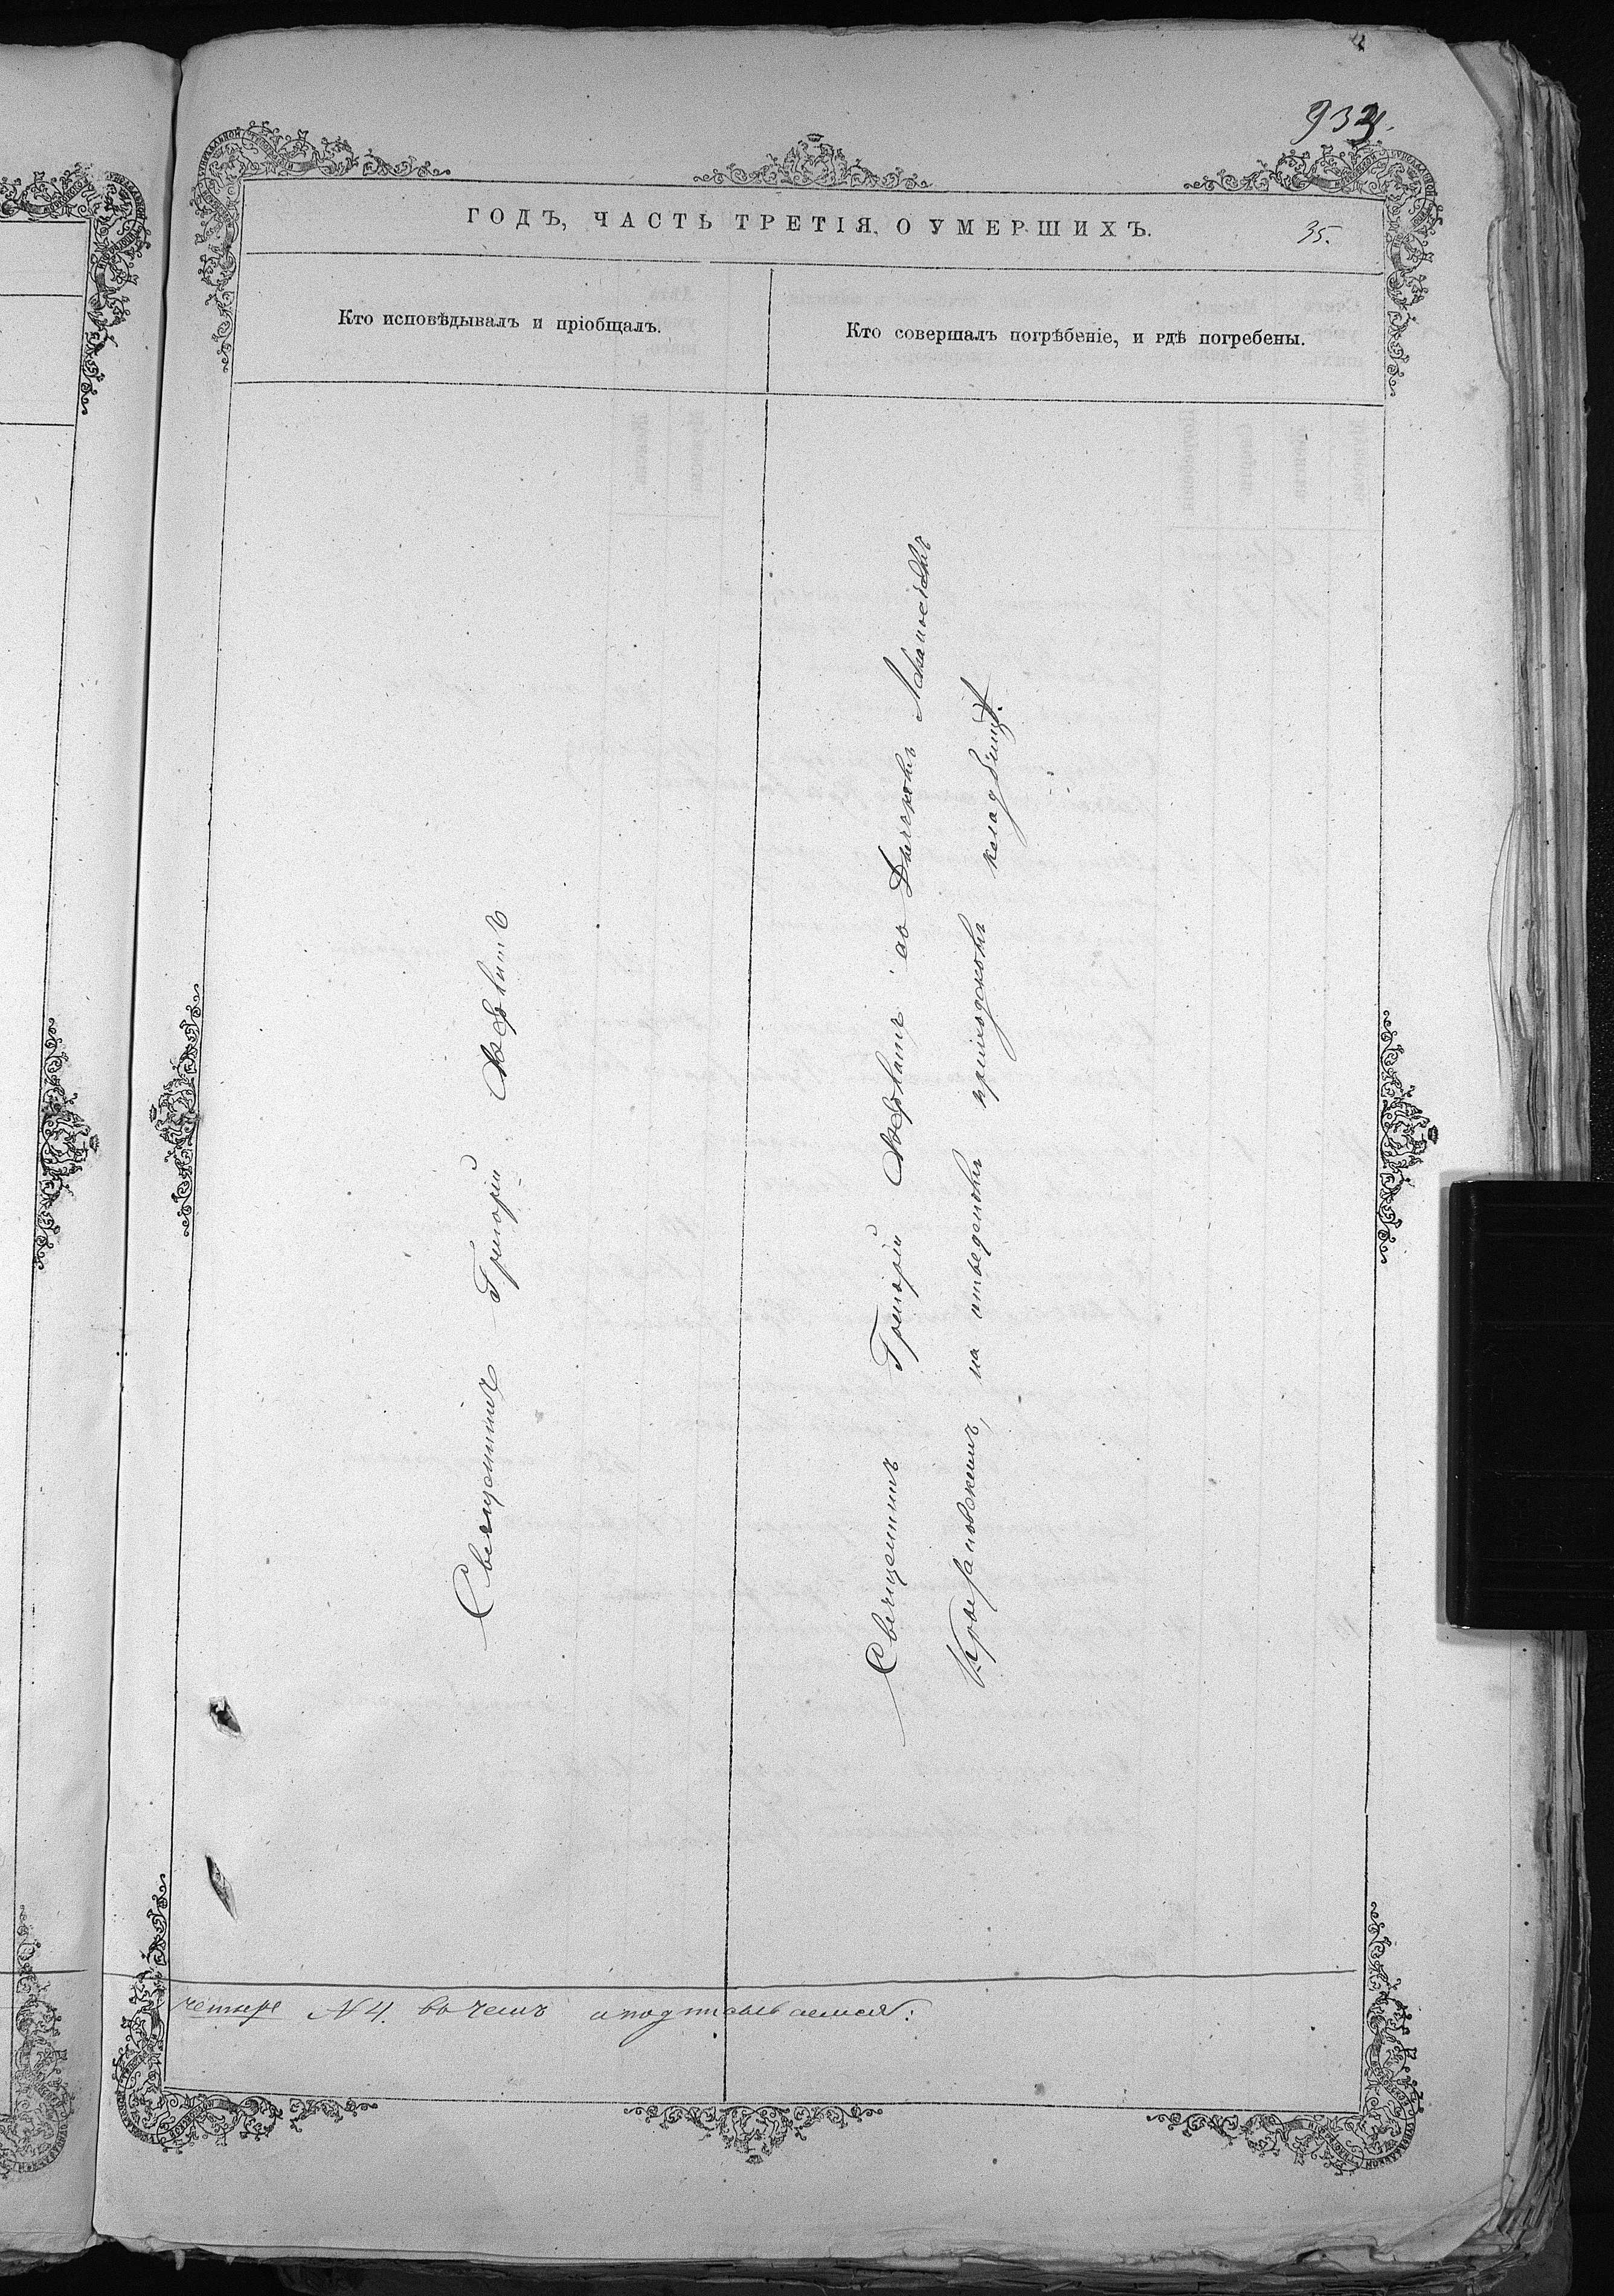 933.
ГОДЪ, ЧАСТЬ ТРЕТІЯ, О УМЕРШИХЪ.
35.
Кто исповѣдывалъ и пріобщалъ.
Кто совершалъ погрѣбеніе, и гдѣ погребены.
Священникъ Григорій
Священникъ Григорій съ Дьячкомъ
на отведенномъ приходскомъ кладбищѣ.
четыре N 4. въ чемъ и подписываемся: